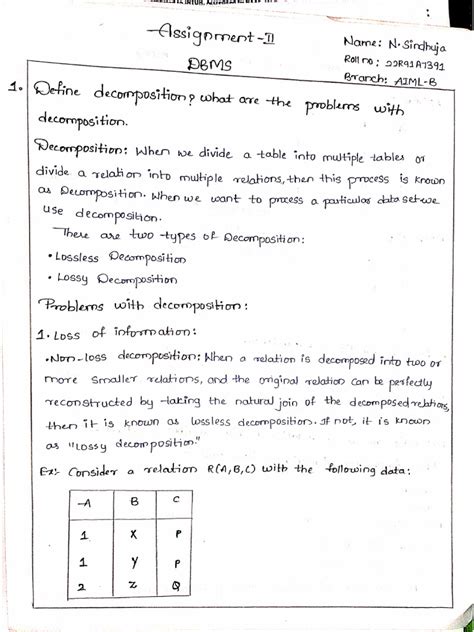 Assignment-II
Name: N. Sindhuja
Roll no: 22R91A7391
DBMS
Branch: AIML-B
1. Define decomposition? what are the problems with
decomposition.
Decomposition: When we divide a table into multiple tables or
divide a relation into multiple relations, then this process is known
as Decomposition. When we want to process a particular data set we
use decomposition.
There are two types of Decomposition:
• Lossless Decomposition
• Lossy Decomposition
Problems with decomposition:
1. Loss of information:
• Non-loss decomposition: When a relation is decomposed into two or
more smaller relations, and the original relation can be perfectly
reconstructed by taking the natural join of the decomposed relations,
then it is known as lossless decomposition. If not, it is known
as "Lossy decomposition"
Ex:- Consider a relation R(A,B,C) with the following data:
A B C
1 X P
1 Y P
2 Z Q